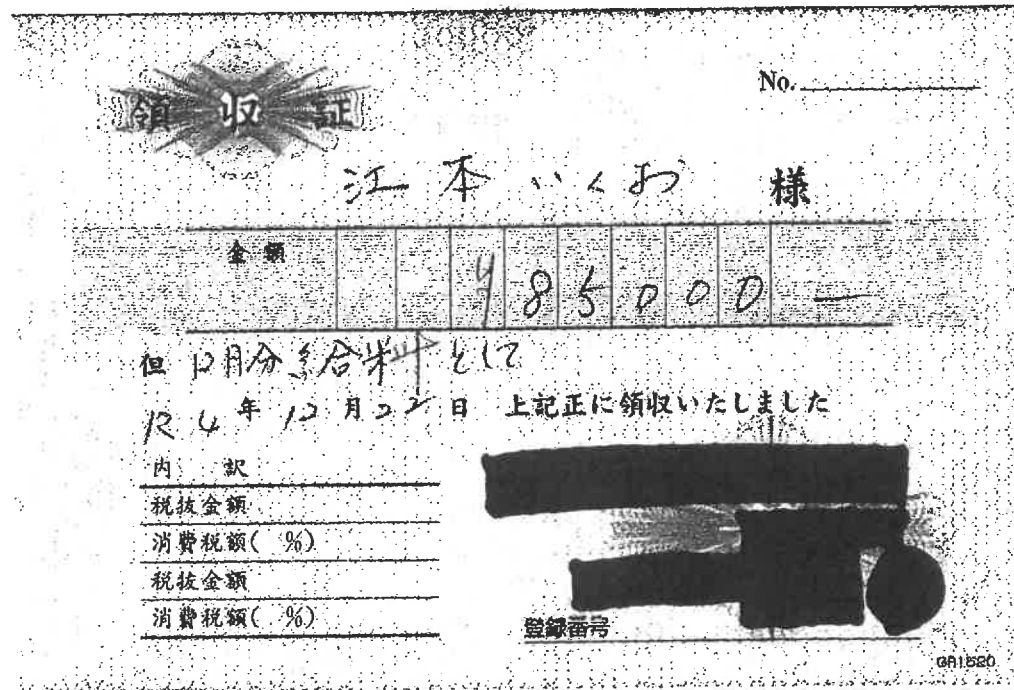 領収証
No.
江本いくお 様
金額 ¥85000―
但 12月分給料として
R4年12月22日 上記正に領収いたしました
内訳
税抜金額
消費税額( %)
税抜金額
消費税額( %)
登録番号
GR1520